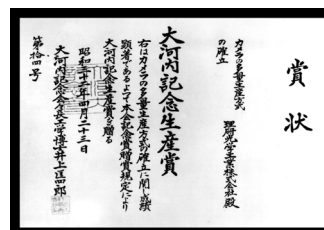 賞状
カメラの多量生産方式
の確立
理研光学工業株式会社殿
大河内記念生産賞
右はカメラの多量生産方式の確立に関し成績
顕著であるよつて本会記念賞贈賞規定により
大河内記念生産賞を贈る
昭和三十二年四月二十三日
大河内記念会会長工学博士井上匡四郎
第拾四号